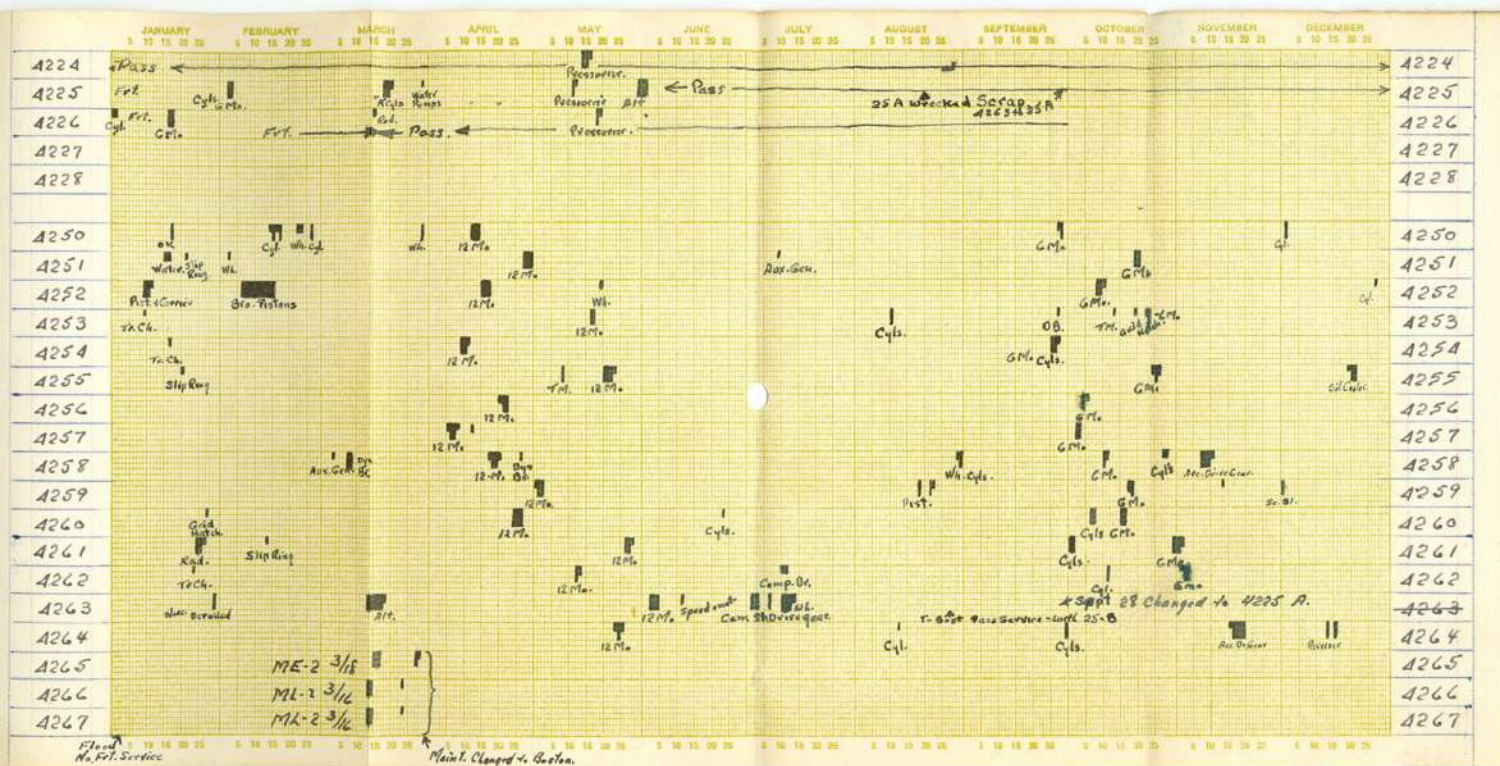 JANUARY FEBRUARY MARCH APRIL MAY JUNE JULY AUGUST SEPTEMBER OCTOBER NOVEMBER DECEMBER
5 10 15 20 25 5 10 15 20 25 5 10 15 20 25 5 10 15 20 25 5 10 15 20 25 5 10 15 20 25 5 10 15 20 25 5 10 15 20 25 5 10 15 20 25 5 10 15 20 25 5 10 15 20 25 5 10 15 20 25
4224 Pass Pressure. 4224
4225 Frt. Cyls. 6Mo. Water Pumps Alt. Pass 25 A Wrecked Scrap 4225
4226 Cyl. Frt. 6Mo. Frt. Rad. Pass. 4263 to 25 A 4226
4227 4227
4228 4228
4250 OK Cyl. Wh. Cyl Wh. 12 Mo. 6 Mo. Cyl. 4250
4251 Water. Slip Ring Wh. 12 Mo. Aux. Gen. 6 Mo. 4251
4252 Bro. Pistons 12 Mo. Wh. 6 Mo. Cyl. 4252
4253 Tr. Ch. 12 Mo. Cyls. OB. T.M. 6 Mo. 4253
4254 Tr. Ch. 12 Mo. 6 Mo. Cyls. 4254
4255 Slip Ring T.M. 12 Mo. 6 Mo. Oil Cooler 4255
4256 12 Mo. 6 Mo. 4256
4257 12 Mo. 6 Mo. 4257
4258 Aux. Gen. Dyn Br. 12 Mo. Dyn Br. Wh. Cyls. 6 Mo. Cyls Acc. Drive Gear 4258
4259 12 Mo. Pist. 6 Mo. 4259
4260 Grid Hatch. 12 Mo. Cyls. Cyls 6 Mo. 4260
4261 Rad. Slip Ring 12 Mo. Cyls. 6 Mo. 4261
4262 Tr. Ch. 12 Mo. Comp. Br. Cyl. 6 mo 4262
4263 Derailed Alt. 12 Mo. Cam Sh Drive gear Wh. * Sept 28 Changed to 4225 A. 4263
4264 12 Mo. Cyl. Pass Service - with 25-B Cyls. Acc Dr Gear Reverser 4264
4265 ME-2 3/18 4265
4266 ML-2 3/16 4266
4267 ML-2 3/16 4267
5 10 15 20 25 5 10 15 20 25 5 10 15 20 25 5 10 15 20 25 5 10 15 20 25 5 10 15 20 25 5 10 15 20 25 5 10 15 20 25 5 10 15 20 25 5 10 15 20 25
Flood
No. Frt. Service
Maint. Changed to Boston.